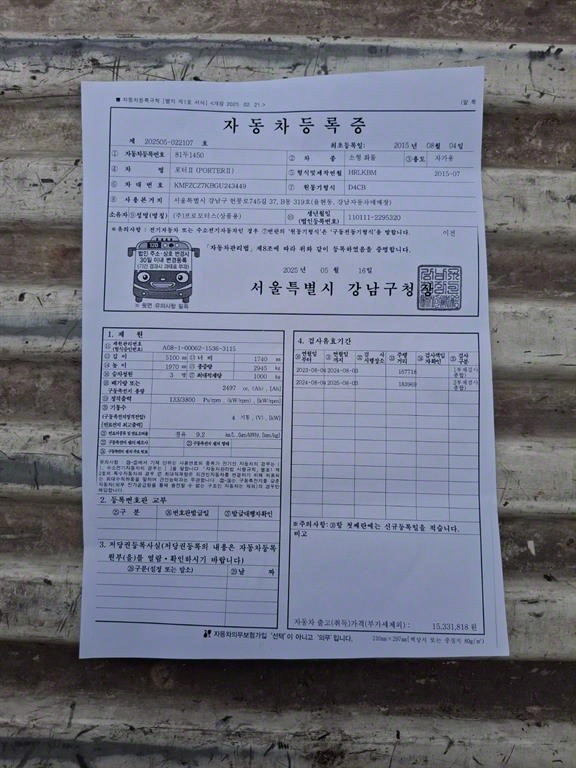 ■ 자동차등록규칙 [별지 제1호 서식] <개정 2025. 02. 21.>
(앞 쪽
자 동 차 등 록 증
제 202505-022107 호
최초등록일: 2015 년 08월 04일
① 자동차등록번호 81두1450 ② 차 종 소형 화물 ③용도 자가용
④ 차 명 포터Ⅱ(PORTERⅡ) ⑤ 형식및제작연월 HRLKBM 2015-07
⑥ 차 대 번 호 KMFZCZ7KBGU243449 ⑦ 원동기형식 D4CB
⑧ 사 용 본 거 지 서울특별시 강남구 헌릉로745길 37, B동 319호(율현동, 강남자동차매매장)
소유자 ⑨성명(명칭) (주)프로모터스(상품용) ⑩ 생년월일(법인등록번호) 110111-2295320
※유의사항 : 전기자동차 또는 수소전기자동차인 경우 ⑦번란의 '원동기형식'은 '구동전동기형식'을 말합니다. 이전
「자동차관리법」 제8조에 따라 위와 같이 등록하였음을 증명합니다.
120
법인 주소·상호 변경시
30일 이내 변경등록
※ 뒷면 유의사항 필독
2025 년 05 월 16일
서울특별시 강남구청장
1. 제 원
⑪ 제원관리번호(형식승인번호) A08-1-00062-1536-3115
⑫ 길 이 5100 mm ⑬ 너 비 1740 mm
⑭ 높 이 1970 mm ⑮ 총중량 2945 kg
⑯ 승차정원 3 명 ⑰ 최대적재량 1000 kg
⑱ 배기량 또는 구동축전지 용량 2497 cc, [Ah], [Ah]
⑲ 정격출력 133/3800 Ps/rpm, [kW/rpm], [kW/rpm]
⑳ 기통수
(구동축전지정격전압)
(연료전지 최고출력)
4 기통, [V], [kW]
경유 9.2
2. 등록번호판 교부
㉕구 분 ㉖번호판발급일 ㉗발급대행자확인
3. 저당권등록사실(저당권등록의 내용은 자동차등록
원부(을)를 열람·확인하시기 바랍니다)
㉘구분(설정 또는 말소) ㉙날 자
4. 검사유효기간
㉚ 연월일부터 ㉛ 연월일까지 ㉜ 검사시행장소 ㉝ 주행거리 ㉞ 검사책임자확인 ㉟ 검사구분
2023-08-04 2024-08-03 167718
2024-08-04 2025-08-03 183969
※주의사항: ㉚항 첫째란에는 신규등록일을 적습니다.
비고
자동차 출고(취득)가격(부가세제외) : 15,331,818 원
자동차의무보험가입 '선택'이 아니고 '의무'입니다.
210㎜×297㎜[백상지 또는 중질지 80g/㎡]